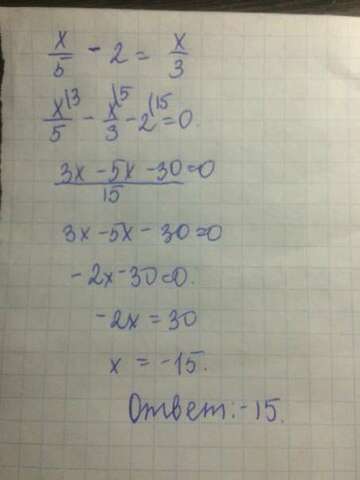 x/5 - 2 = x/3
x\3/5 - x\5/3 - 2\15 = 0.
3x - 5x - 30/15 = 0
3x - 5x - 30 = 0
-2x - 30 = 0.
-2x = 30
x = -15.
Ответ: -15.